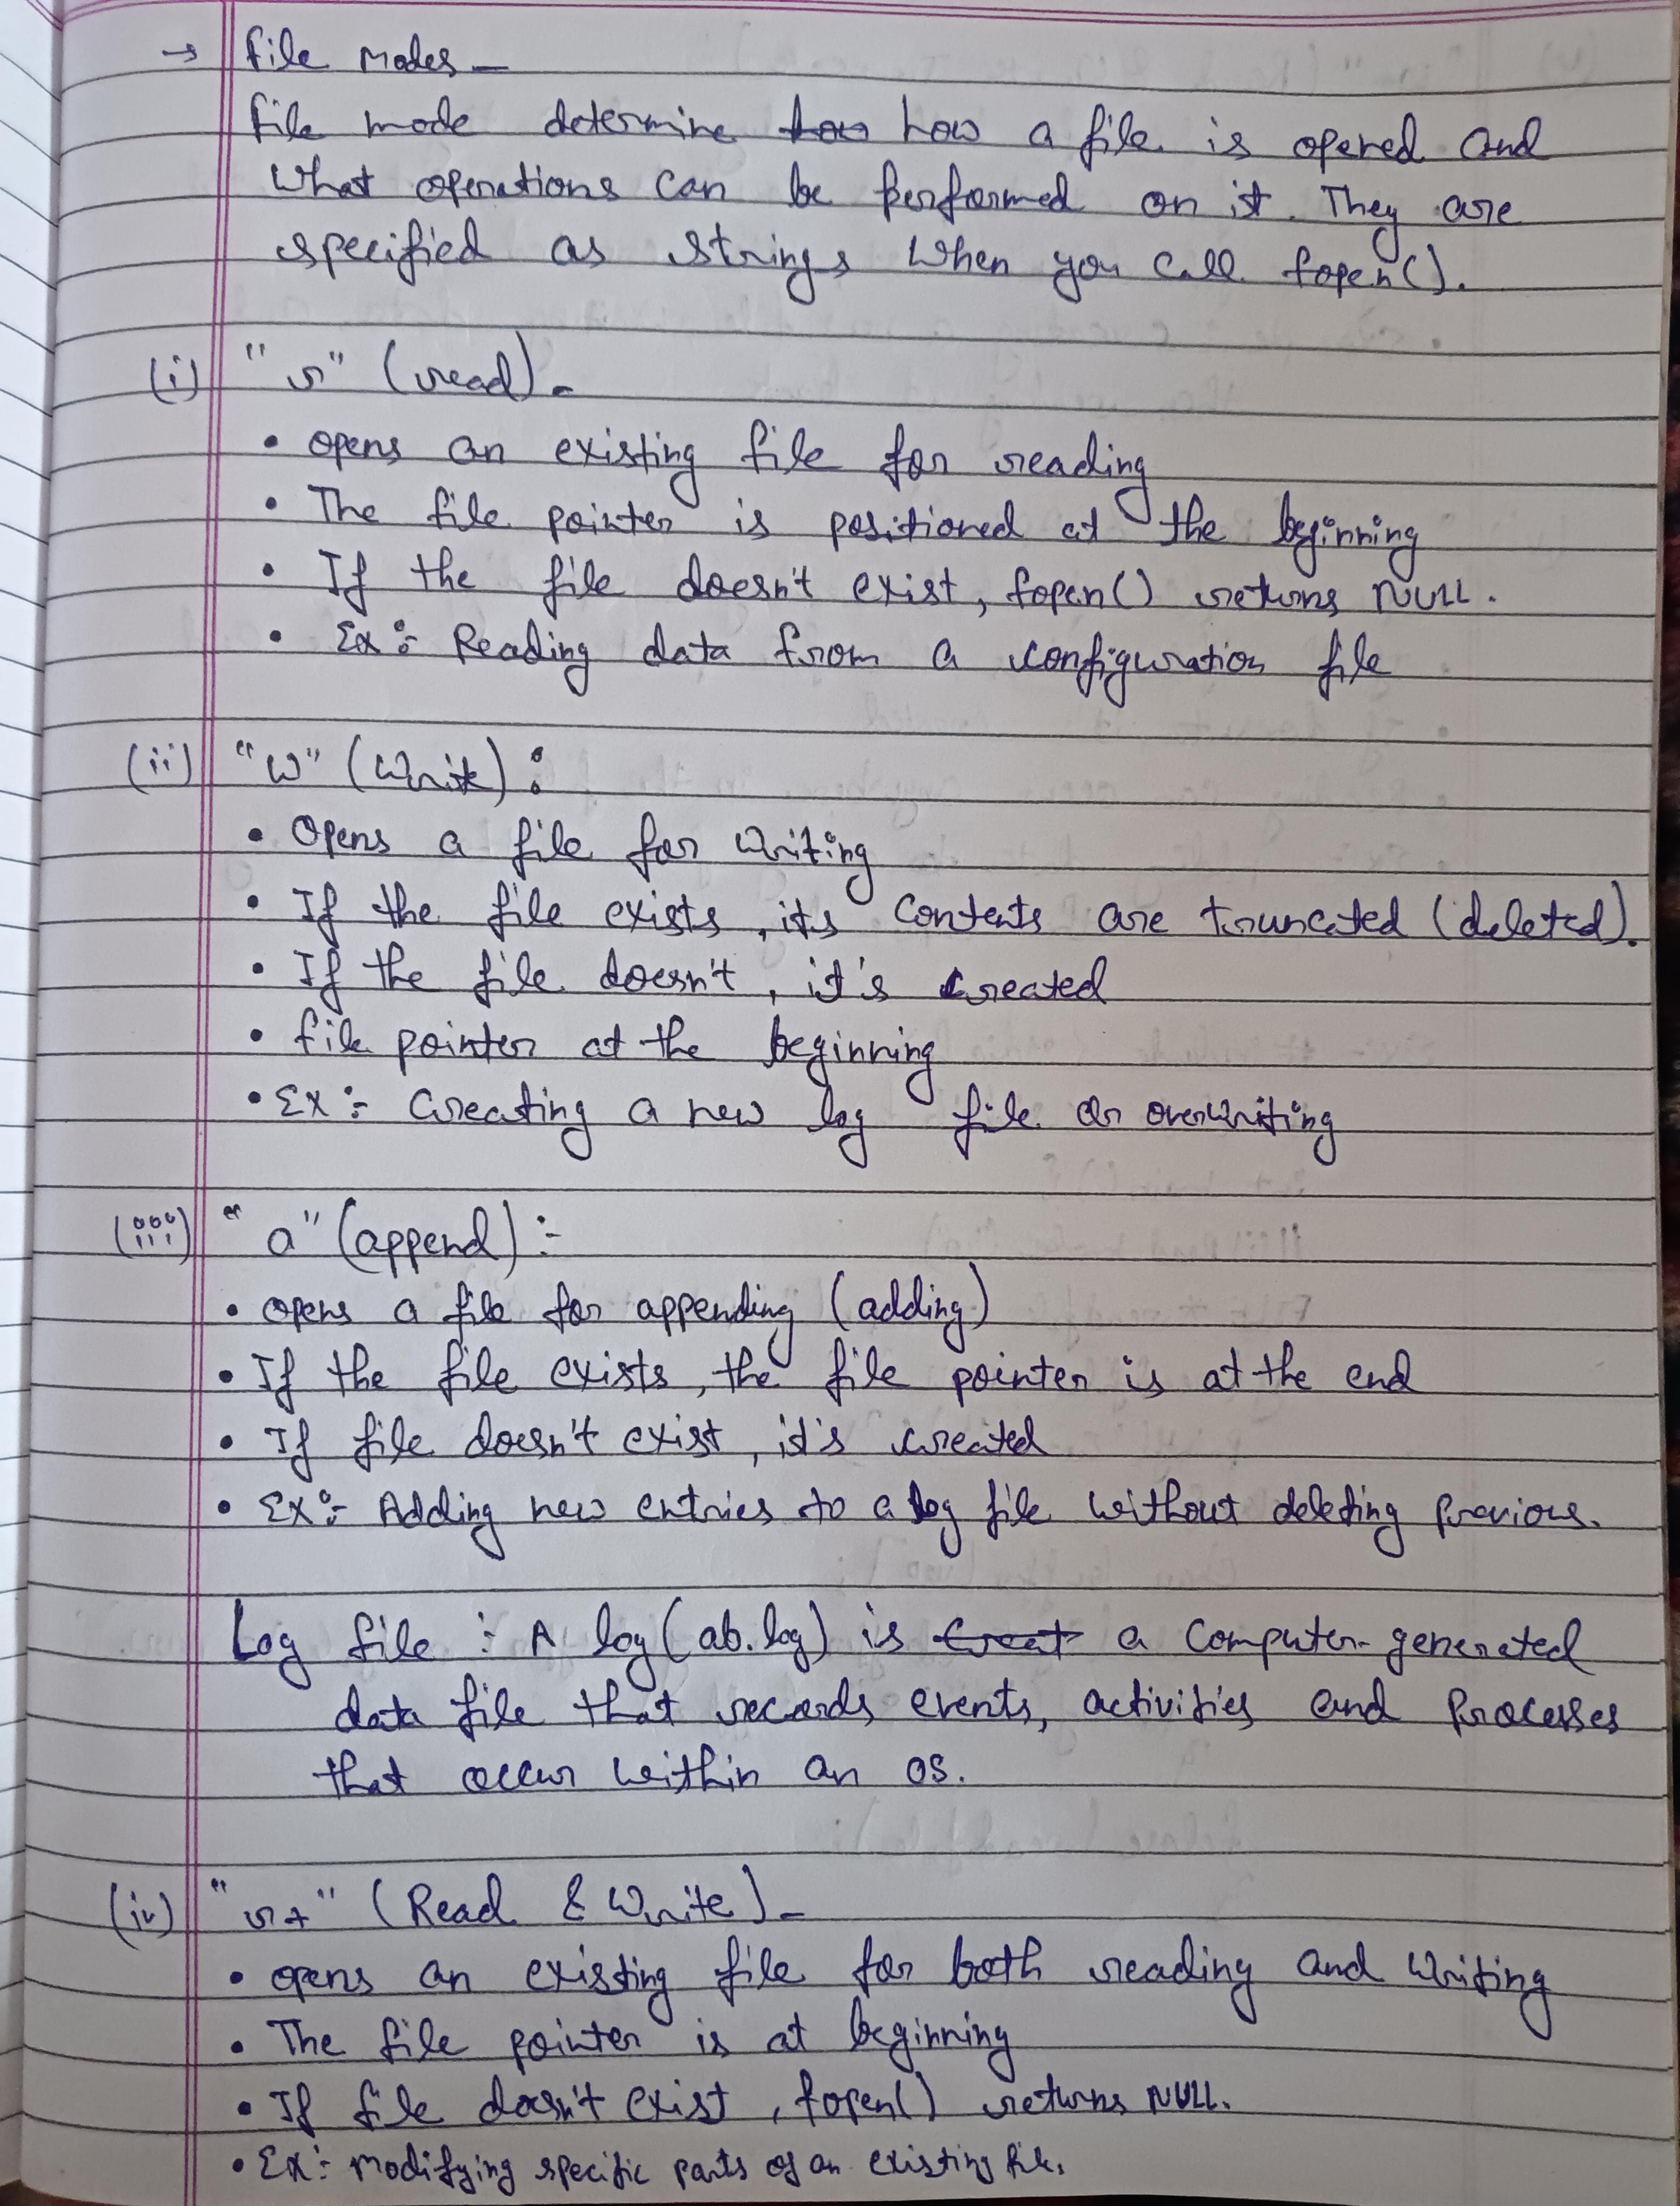 → File Modes –
File mode determine how how a file is opened and
what operations can be performed on it. They are
specified as strings when you call fopen().
(i) "r" (read) -
• opens an existing file for reading
• The file pointer is positioned at the beginning
• If the file doesn't exist, fopen() returns NULL.
• Ex :- Reading data from a configuration file
(ii) "w" (write) :
• Opens a file for writing
• If the file exists, its contents are truncated (deleted).
• If the file doesn't, it's created
• file pointer at the beginning
• Ex :- Creating a new log file or overwriting
(iii) "a" (append) :-
• opens a file for appending (adding)
• If the file exists, the file pointer is at the end
• If file doesn't exist, it's created
• Ex :- Adding new entries to a log file without deleting previous.
Log file :- A log (ab.log) is Creat a computer-generated
data file that records events, activities and processes
that occur within an OS.
(iv) "r+" (Read & Write) -
• opens an existing file for both reading and writing
• The file pointer is at beginning
• If file doesn't exist, fopen() returns NULL.
• Ex :- Modifying specific parts of an existing file.